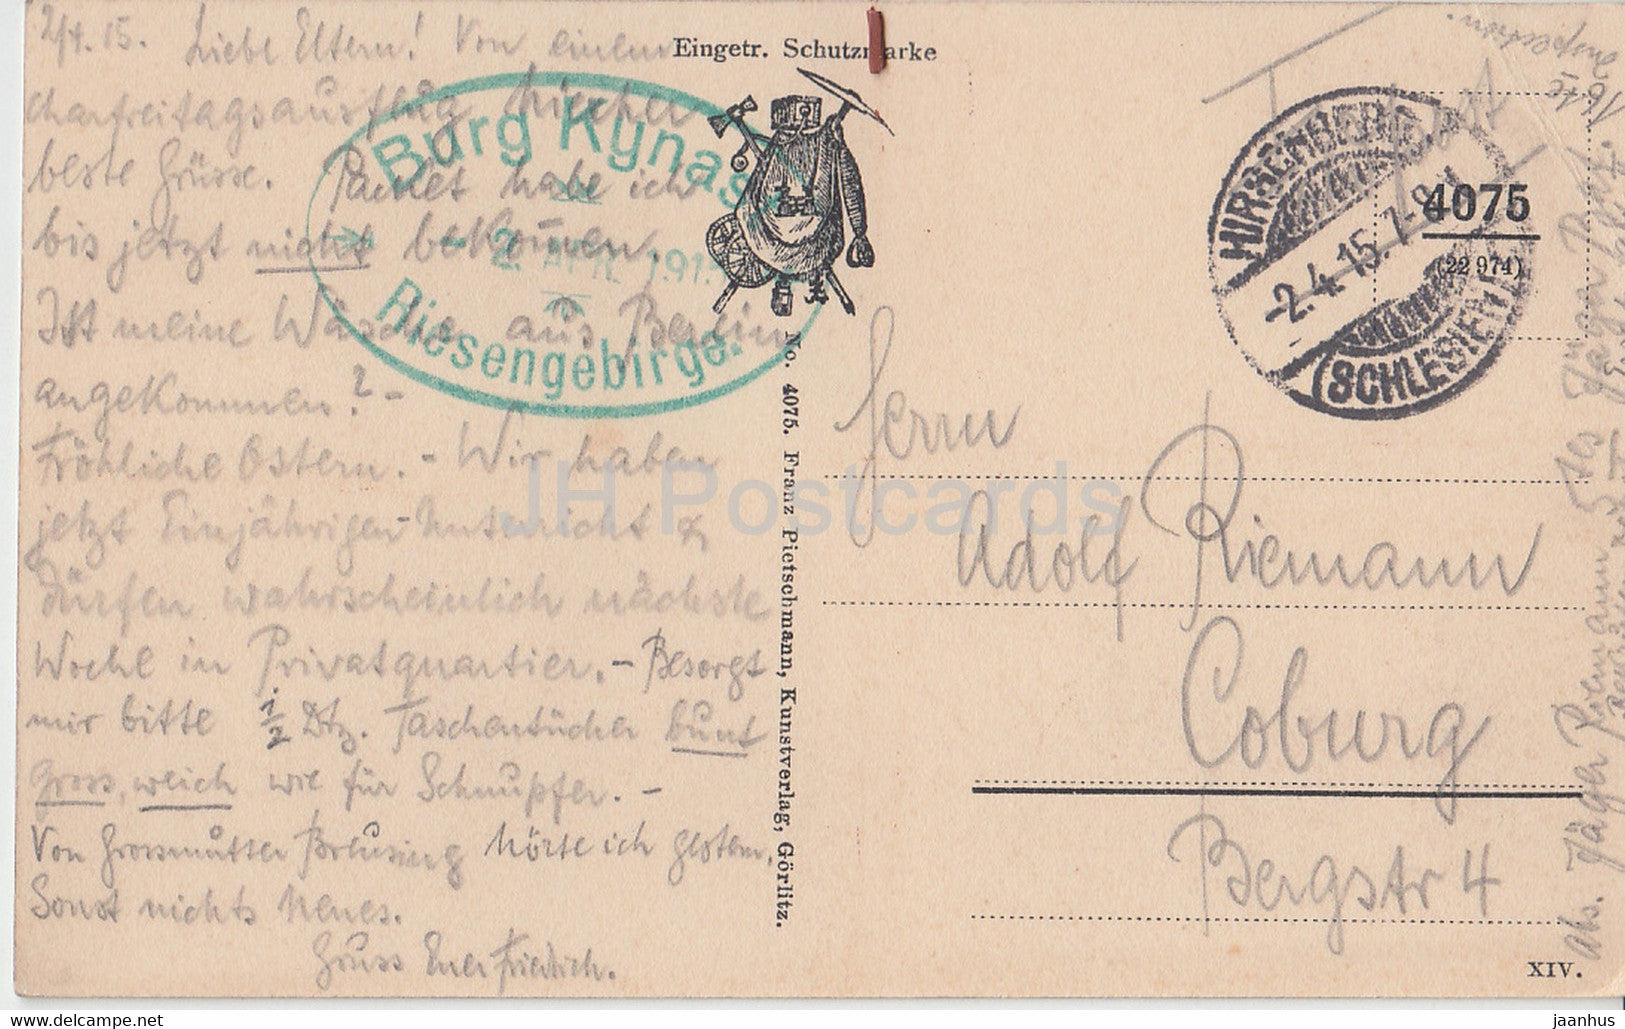 2/4.15. Liebe Eltern! Von einem
charfreitagsausflug hierher
beste Grüsse. Packet habe ich
bis jetzt nicht bekommen.
Ist meine Wäsche aus Berlin
angekommen? –
Fröhliche Ostern. – Wir haben
jetzt Einjährigen-Unterricht &
dürfen wahrscheinlich nächste
Woche in Privatquartier. – Besorgt
mir bitte 1/2 Dtz. Taschentücher bunt
gross, weich wie für Schnupfer. –
Von Grossmutter Breusing hörte ich gestern.
Sonst nichts Neues.
Gruss Euer Friedrich.
Burg Kynas
2. APR. 1915
Riesengebirge.
Eingetr. Schutzmarke
No. 4075. Franz Pietschmann, Kunstverlag, Görlitz.
HIRSCHBERG
-2.4.15. 7-8
(SCHLESIEN)
4075
(22 974)
Herrn
Adolf Riemann
Coburg
Bergstr 4
XIV.
Abs. Jäger Riemann 5tes Jäger Batl.
JH Postcards
www.delcampe.net
jaanhus